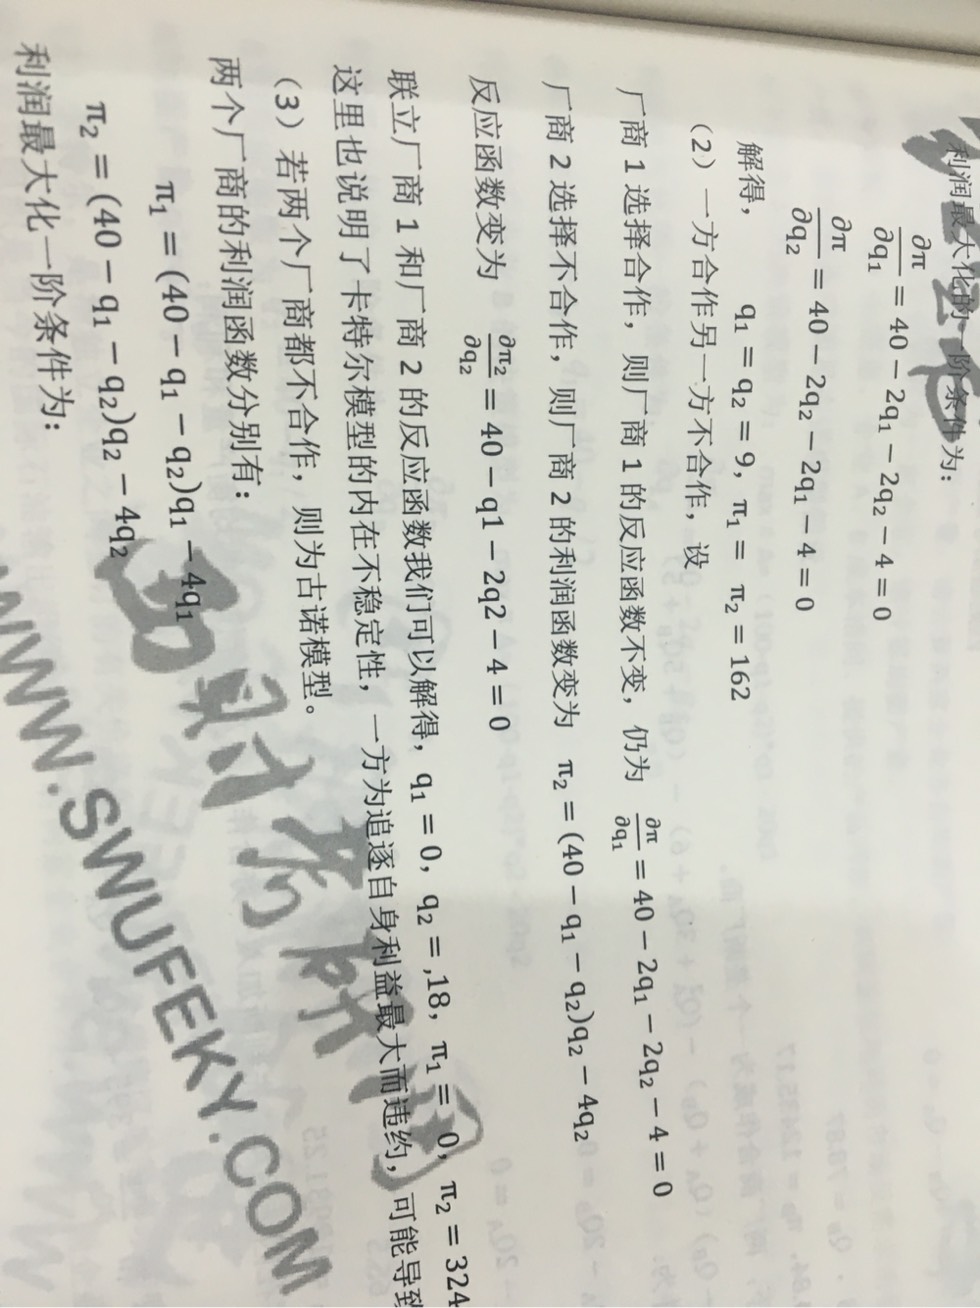 利润最大化的一阶条件为：
∂π/∂q₁ = 40 − 2q₁ − 2q₂ − 4 = 0
∂π/∂q₂ = 40 − 2q₂ − 2q₁ − 4 = 0
解得， q₁ = q₂ = 9，π₁ = π₂ = 162
（2）一方合作另一方不合作，设
厂商 1 选择合作，则厂商 1 的反应函数不变，仍为 ∂π/∂q₁ = 40 − 2q₁ − 2q₂ − 4 = 0
厂商 2 选择不合作，则厂商 2 的利润函数变为 π₂ = (40 − q₁ − q₂)q₂ − 4q₂
反应函数变为 ∂π₂/∂q₂ = 40 − q1 − 2q2 − 4 = 0
联立厂商 1 和厂商 2 的反应函数我们可以解得，q₁ = 0，q₂ =,18，π₁ = 0，π₂ = 324
这里也说明了卡特尔模型的内在不稳定性，一方为追逐自身利益最大而违约，可能导致
（3）若两个厂商都不合作，则为古诺模型。
两个厂商的利润函数分别有：
π₁ = (40 − q₁ − q₂)q₁ − 4q₁
π₂ = (40 − q₁ − q₂)q₂ − 4q₂
利润最大化一阶条件为：
WWW.SWUFEKY.COM